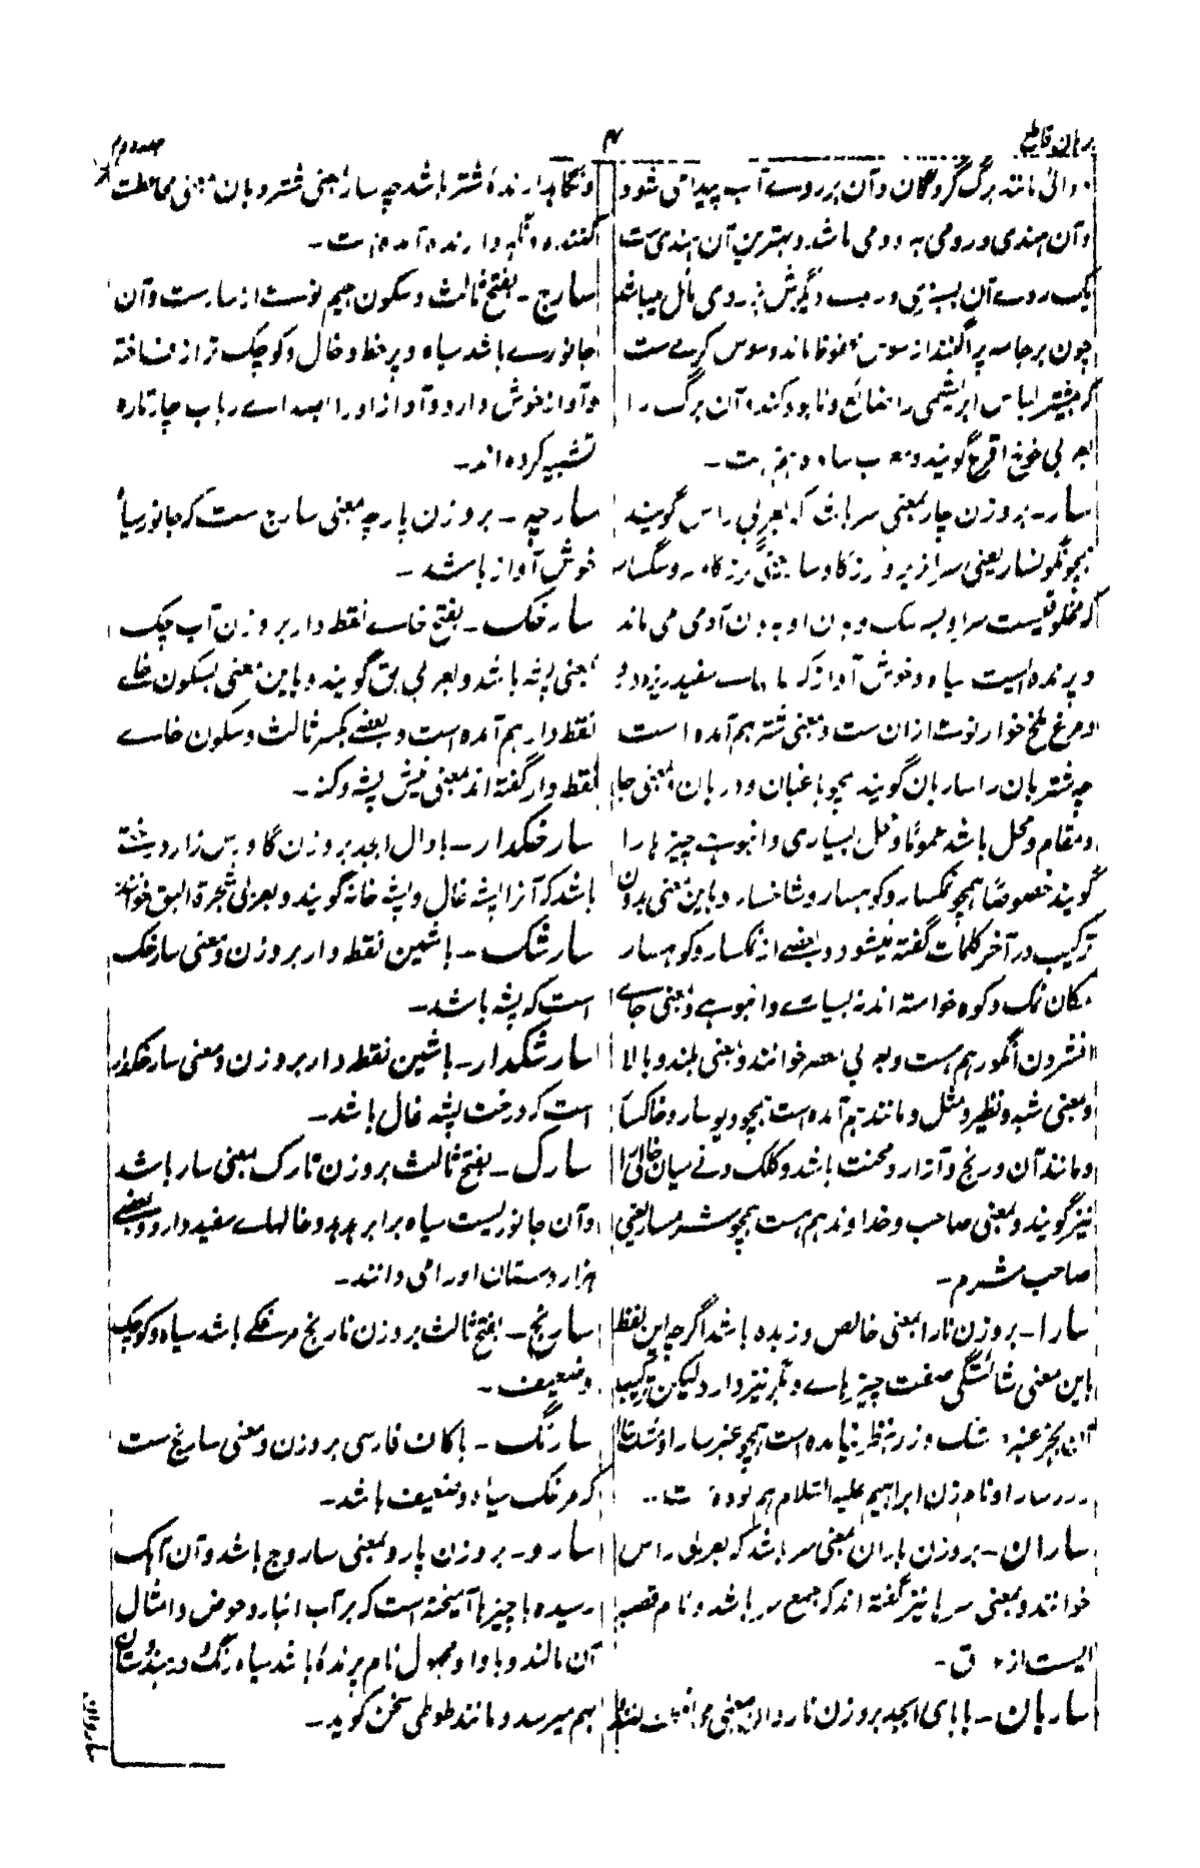 برهان قاطع
۴
جلد دوم
دوائی مانند برگ گردگان و آن بر روے آب پیدا می شود
و آن هندی و رومی هر دو می باشد و بهترین آن هندی ست
یک روے آن بسبزی و روے دیگرش بزردی مائل میباشد
چون بر جامه پراگنند از سوس محفوظ ماند و سوس کرمے ست
که بیشتر لباس ابریشمی را ضائع و نابود کند و آن برگ را
بعربی گویند و
سار - بروزن چار بمعنی سر باشد که بعربی راس گویند
همچو نگونسار یعنی سرازیر و گاوسار یعنی گرز گاو سر و سگسار
که مخلوقیست سر او بسر سگ و بدن او ببدن آدمی می ماند
و پرنده ایست سیاه و خوش آواز که خالهاے سفید ریزه دارد
و مرغ ملخ خوار نوعے از ان ست و بمعنی شتر هم آمده است
چه شتربان را ساربان گویند همچو باغبان و دربان و بمعنی جا
و مقام و محل باشد عموماً و محل بسیاری و انبوهی چیزها را
گویند خصوصاً همچو نمکسار و کوهسار و شاخسار و باین معنی بدون
ترکیب در آخر کلمات گفته نمیشود و بعضے از نمکسار و کوهسار
مکان نمک و کوه خواسته اند نه بسیارے و انبوهے و بمعنی جاے
افشردن انگور هم هست و بعربی معصر خوانند و بمعنی بلند و بالا
و بمعنی شبه و نظیر و مثل و مانند هم آمده است همچو دیوسار و خاکسار
و مانند آن و رنج و آزار و محنت باشد و کلک و نے میان خالی را
نیز گویند و بمعنی صاحب و خداوند هم هست همچو شرمسار یعنی
صاحب شرم -
سارا - بروزن دارا بمعنی خالص و زبده باشد اگرچه این لفظ
باین معنی شائستگی صفت چیزهاے دیگر نیز دارد لیکن ترکیب
آن بجز عنبر و مشک و زر بنظر نیامده است همچو عنبر سارا و مشک سارا
و زر سارا و نام زن ابراهیم علیه السلام هم بوده است
ساران - بروزن باران بمعنی سر باشد که بعربی راس
خوانند و بمعنی سرها نیز گفته اند که جمع سر باشد و نام قصبه
ایست از
ساربان - بابای ابجد بروزن ناردان بمعنی محافظت کننده
و نگاهدارندهٔ شتر باشد چه سار بمعنی شتر و بان بمعنی محافظت
کننده و نگهدارنده آمده است -
سارج - بفتح ثالث و سکون جیم نوعست از سار ست و آن
جانورے باشد سیاه و پر خط و خال و کوچک تر از فاخته
و آواز خوش دارد و آواز او را بصداے رباب چارتاره
تشبیه کرده اند -
سارجه - بروزن پارچه بمعنی سارج ست که جانور سیاه
خوش آواز باشد -
سارخک - بفتح خاے نقطه دار بروزن آب چک
بمعنی پشه باشد و بعربی بق گویند و باین معنی بسکون خاے
نقطه دار هم آمده است و بعضے بکسر ثالث و سکون خاے
نقطه دار گفته اند بمعنی نیش پشه و کنه -
سارخکدار - با دال ابجد بروزن گاورس زار درختے
باشد که آنرا پشه غال و پشه خانه گویند و بعربی شجرة البق خوانند
سارشک - با شین نقطه دار بروزن و معنی سارخک
است که پشه باشد -
سارشکدار - باشین نقطه دار بروزن و معنی سارخکدار
است که درخت پشه غال باشد -
سارک - بفتح ثالث بروزن تارک بمعنی سار باشد
و آن جانوریست سیاه برابر هدهد و خالهاے سفید دارد و بعضے
هزار دستان او را می دانند -
سارنج - بفتح ثالث بروزن نارنج مرغکے باشد سیاه و کوچک
و ضعیف -
سارنگ - با کاف فارسی بروزن و معنی سارنج ست
که مرغک سیاه و ضعیف باشد -
سارو - بروزن پارو بمعنی ساروج باشد و آن آهک
رسیده با چیزها آمیخته است که بر آب انبار و حوض و امثال
آن مالند و با واو مجهول نام پرندهٔ باشد سیاه رنگ و در هندوستان
بهم میرسد و مانند طوطی سخن گوید -
ساروان